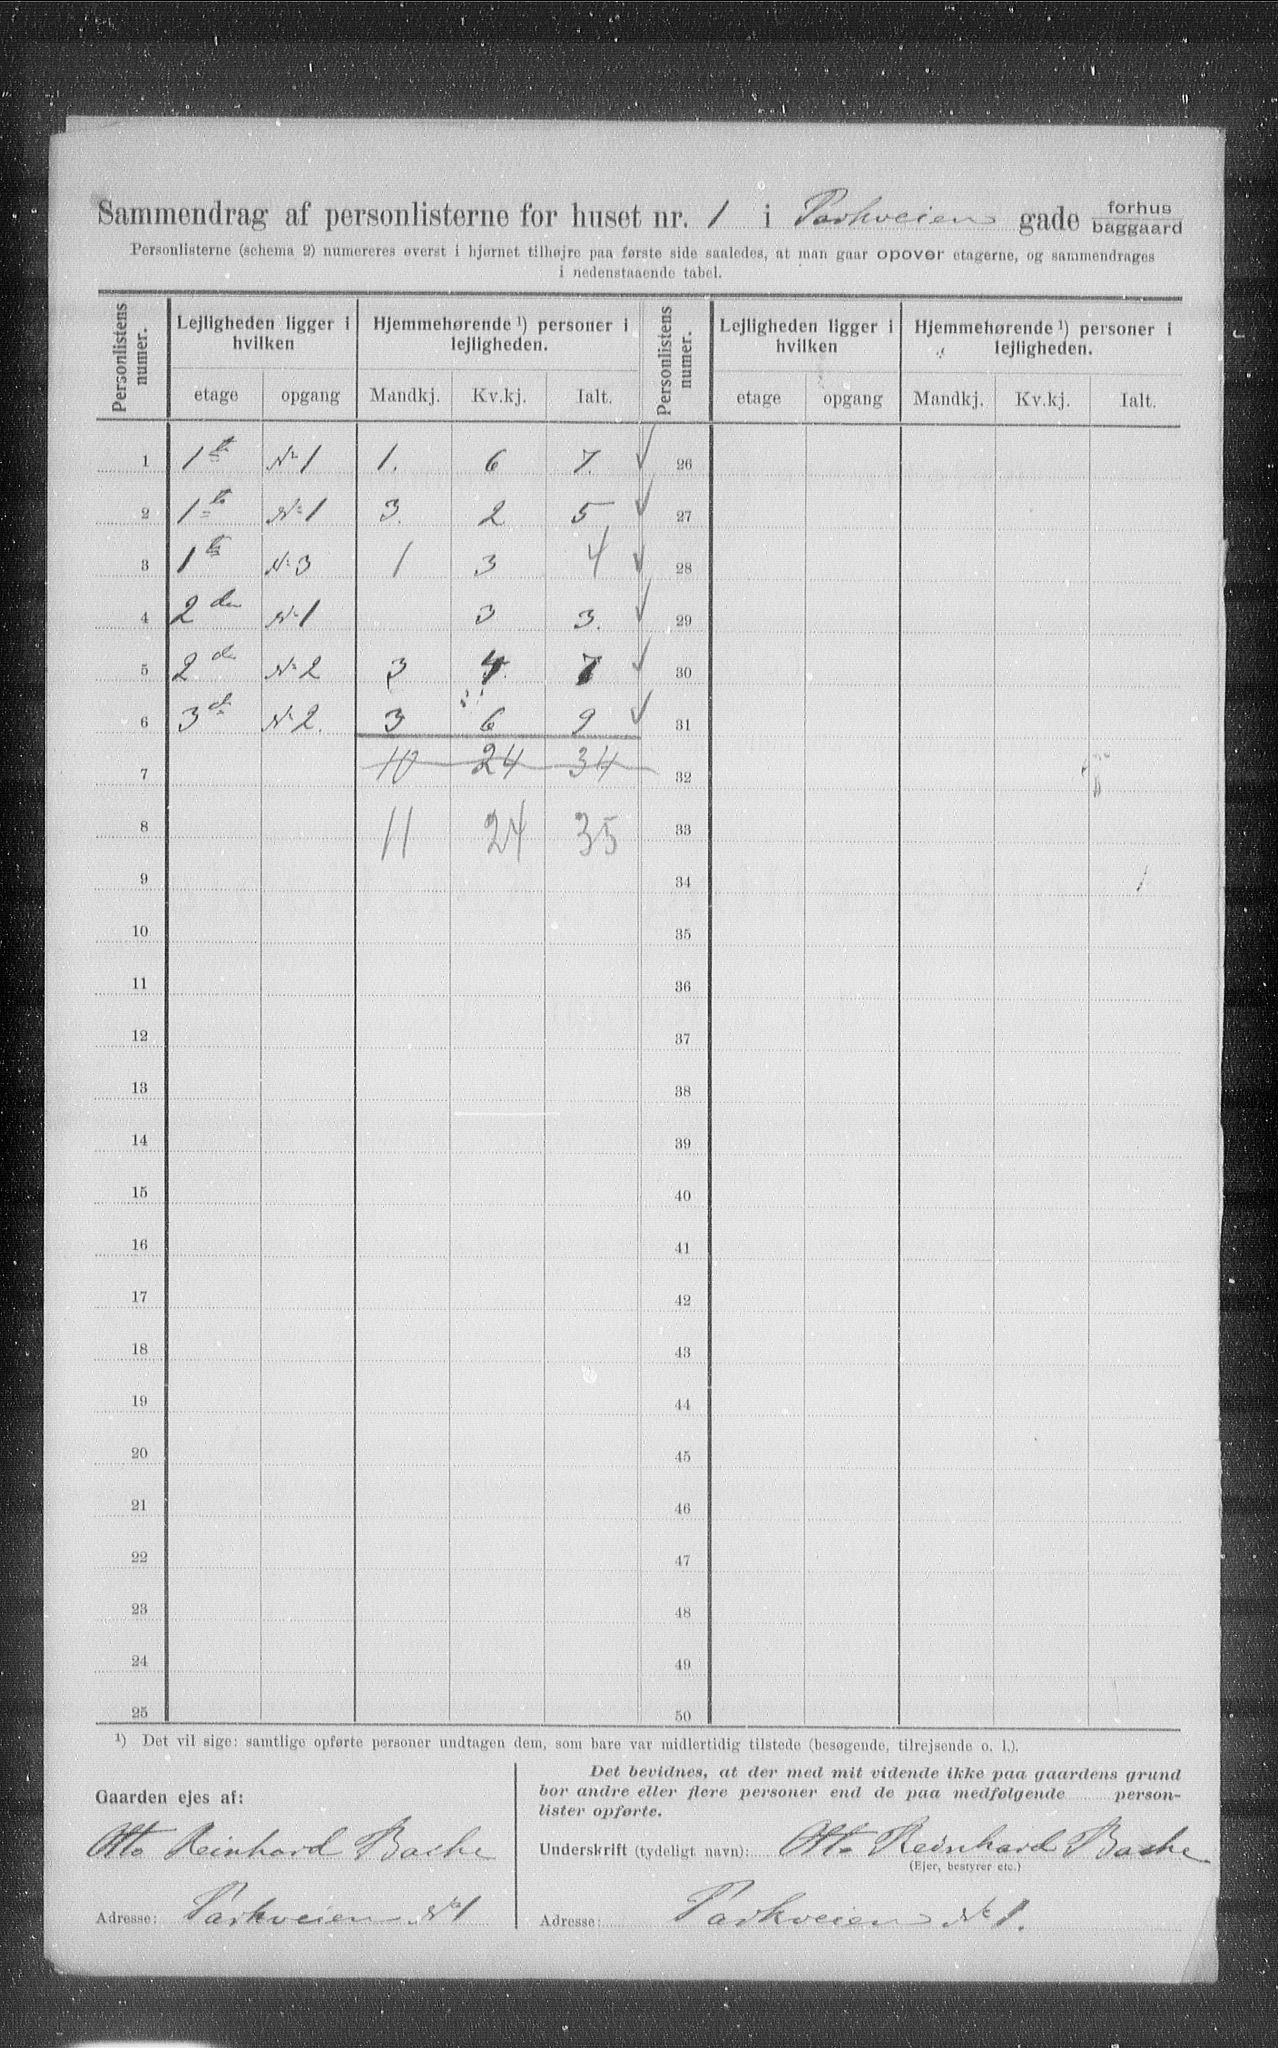 Sammendrag af personlisterne for huset nr. 1 i Parkveien gade forhus baggaard
Personlisterne (schema 2) numereres øverst i hjørnet tilhøjre paa første side saaledes, at man gaar opover etagerne, og sammendrages
i nedenstaaende tabel.
Personlistens numer. Lejligheden ligger i hvilken Hjemmehørende ¹) personer i lejligheden. Personlistens numer. Lejligheden ligger i hvilken Hjemmehørende ¹) personer i lejligheden.
etage opgang Mandkj. Kv.kj. Ialt. etage opgang Mandkj. Kv.kj. Ialt.
1 1ste № 1 1. 6 7. ✓ 26
2 1ste № 1 3. 2 5 ✓ 27
3 1ste № 3 1 3 4 ✓ 28
4 2den № 1 3 3. ✓ 29
5 2den № 2 3 4. 7 ✓ 30
6 3die № 2. 3 6 9 ✓ 31
7 10 24 34 32
8 11 24 35 33
9 34
10 35
11 36
12 37
13 38
14 39
15 40
16 41
17 42
18 43
19 44
20 45
21 46
22 47
23 48
24 49
25 50
¹) Det vil sige: samtlige opførte personer undtagen dem, som bare var midlertidig tilstede (besøgende, tilrejsende o. l.).
Gaarden ejes af:
Otto Reinhard Bache
Adresse: Parkveien № 1
Det bevidnes, at der med mit vidende ikke paa gaardens grund
bor andre eller flere personer end de paa medfølgende person-
lister opførte.
Underskrift (tydeligt navn): Otto Reinhard Bache
(Ejer, bestyrer etc.)
Adresse: Parkveien № 1.